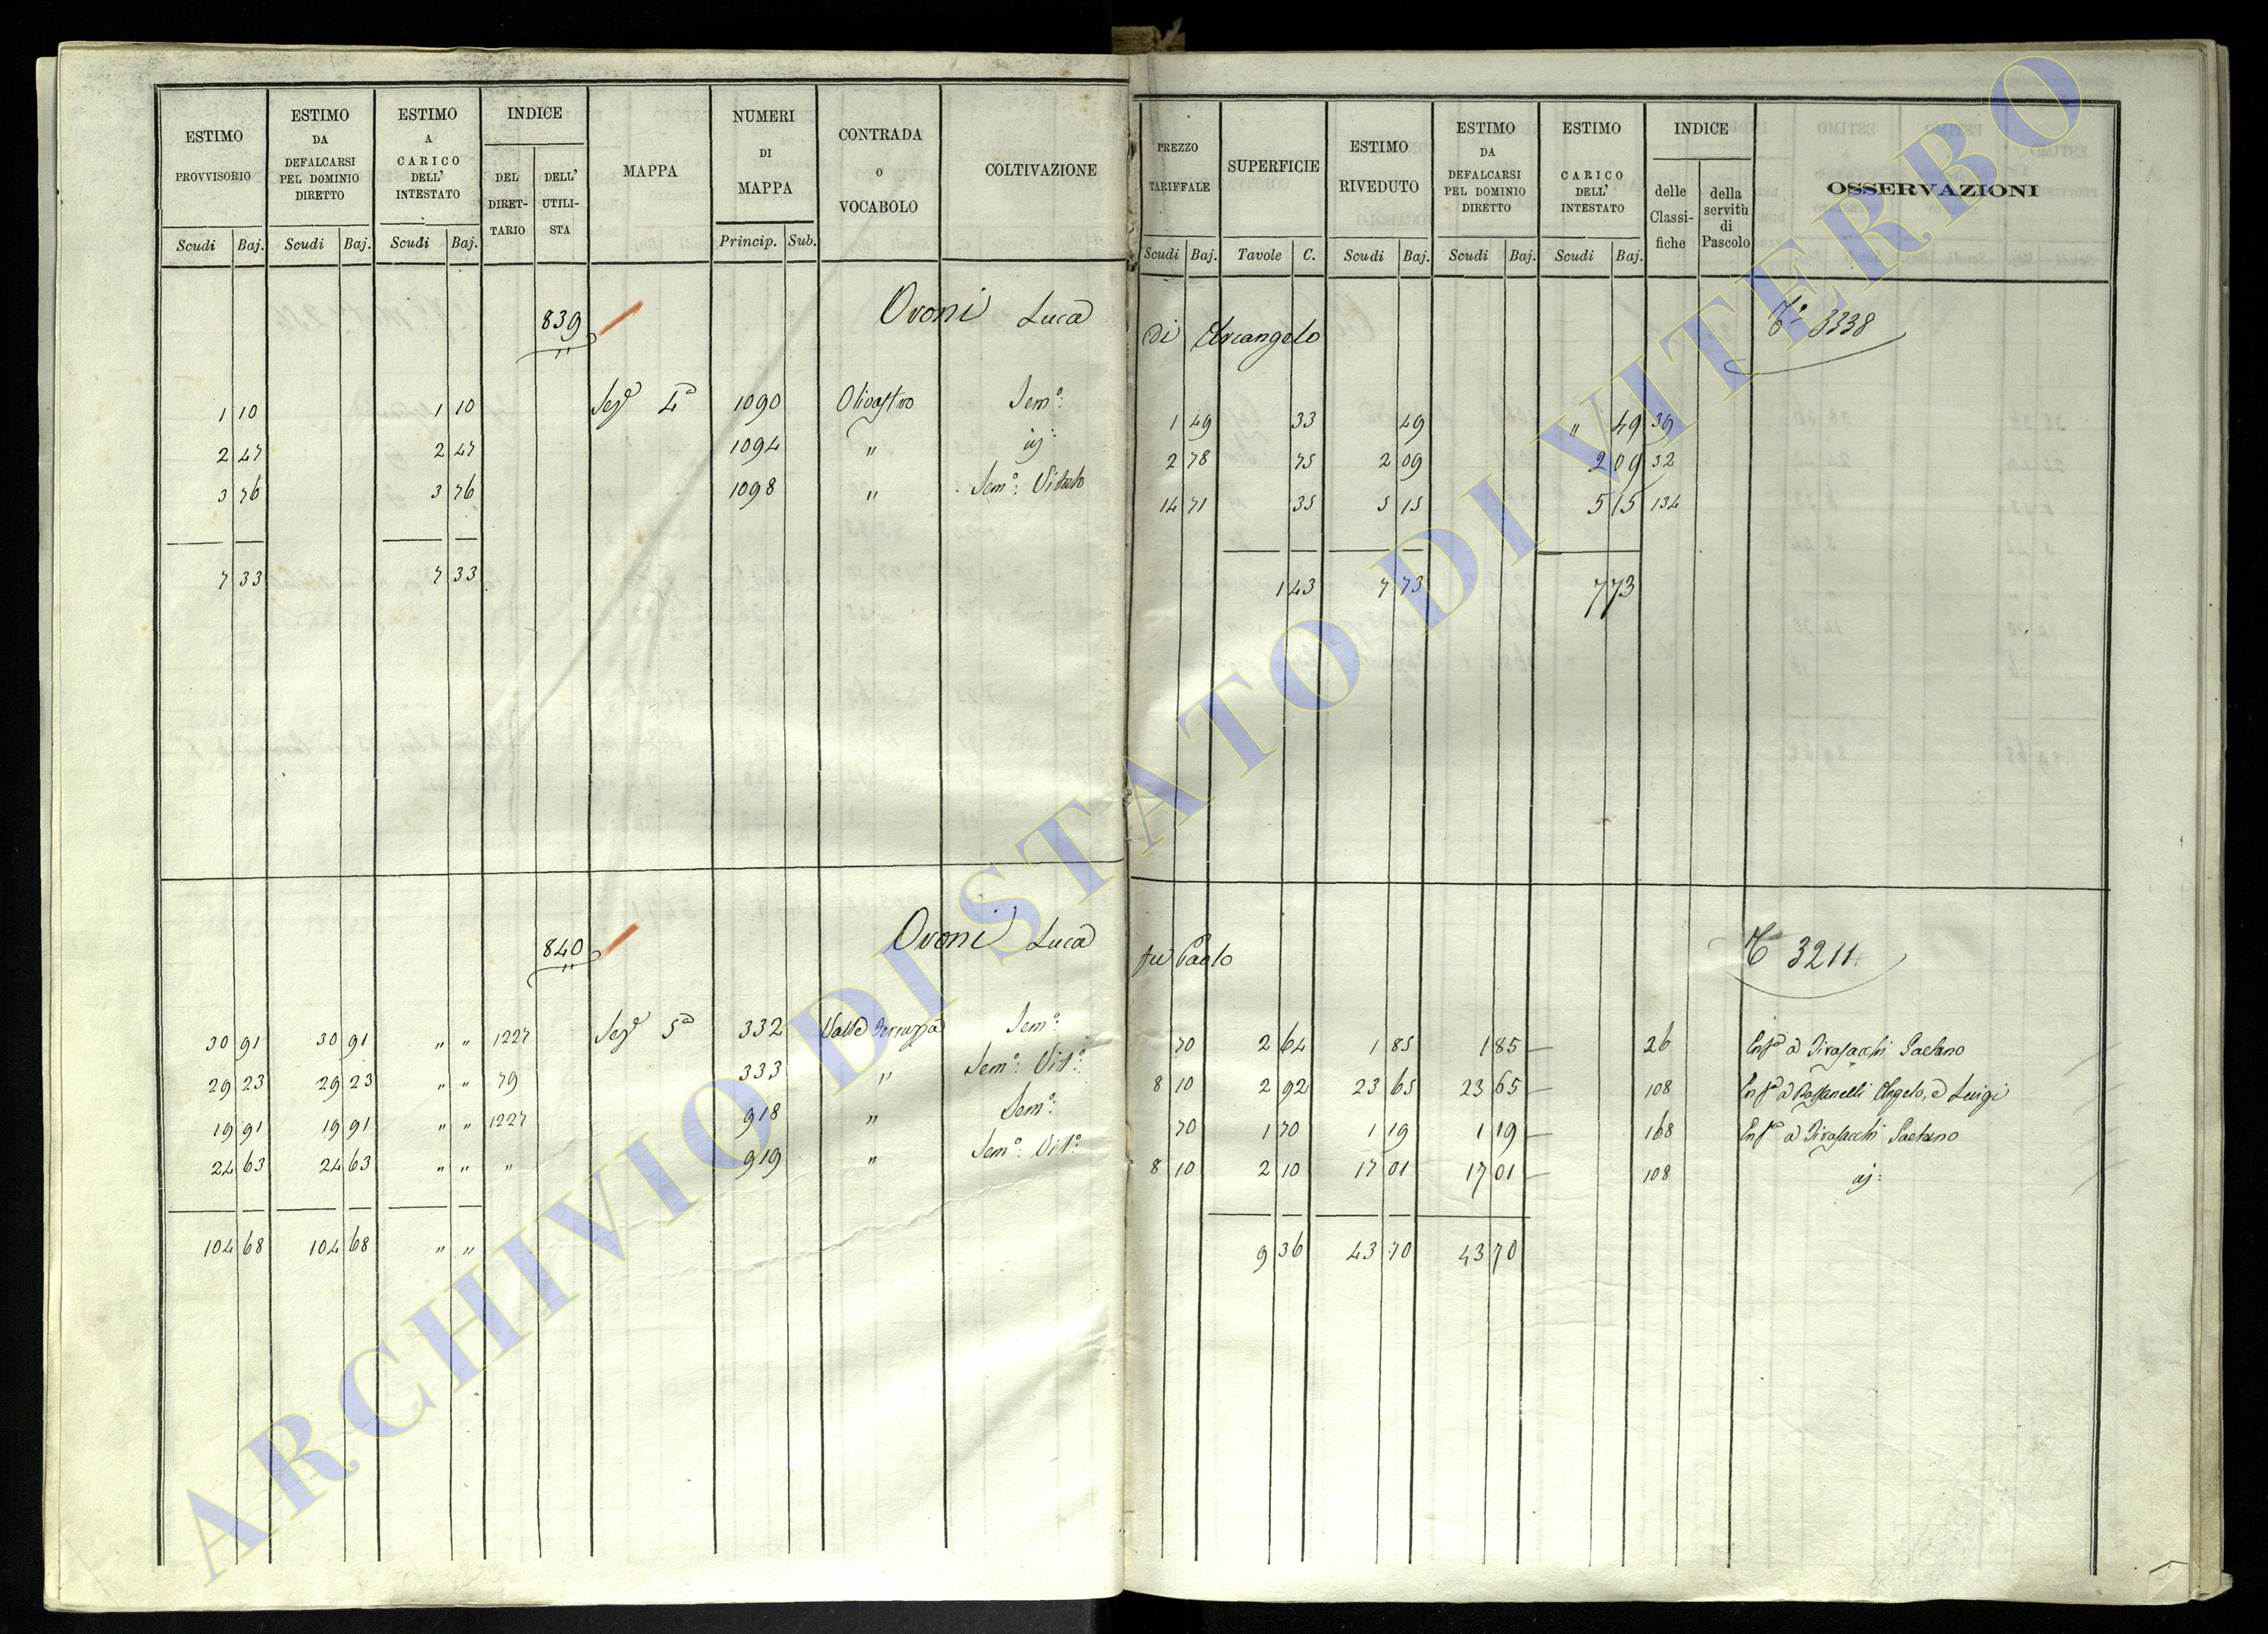 ESTIMO PROVVISORIO Scudi Baj.
ESTIMO DA DEFALCARSI PEL DOMINIO DIRETTO Scudi Baj.
ESTIMO A CARICO DELL' INTESTATO Scudi Baj.
INDICE DEL DIRET-TARIO DELL' UTILI-STA
MAPPA
NUMERI DI MAPPA Princip. Sub.
CONTRADA O VOCABOLO
COLTIVAZIONE
PREZZO TARIFFALE Scudi Baj.
SUPERFICIE Tavole C.
ESTIMO RIVEDUTO Scudi Baj.
ESTIMO DA DEFALCARSI PEL DOMINIO DIRETTO Scudi Baj.
ESTIMO A CARICO DELL' INTESTATO Scudi Baj.
INDICE delle Classi-fiche della servitù di Pascolo
OSSERVAZIONI
839 Ovoni Luca di Arcangelo 3338
1 10 1 10 Sez.e 4a 1090 Olivastro Sem.o: 1 49 33 49 " 49 39
2 47 2 47 1094 " id: 2 78 75 2 09 2 09 32
3 76 3 76 1098 " Sem.o: Vitato 14 71 35 5 15 5 15 134
7 33 7 33 1 43 7 73 7 73
840 Ovoni Luca fu Paolo 3211
30 91 30 91 " " 1227 Sez.e 5a 332 Valle Sem.o: 70 2 64 1 85 1 85 26 Enf.a a Gaetano
29 23 29 23 " " 79 333 " Sem.o: Vit.o: 8 10 2 92 23 65 23 65 108 Enf.a a Angelo, e Luigi
19 91 19 91 " " 1227 918 " Sem.o: 70 1 70 1 19 1 19 168 Enf.a a Gaetano
24 63 24 63 " " " 919 " Sem.o: Vit.o: 8 10 2 10 17 01 17 01 108 id:
104 68 104 68 " " 9 36 43 70 43 70
ARCHIVIO DI STATO DI VITERBO